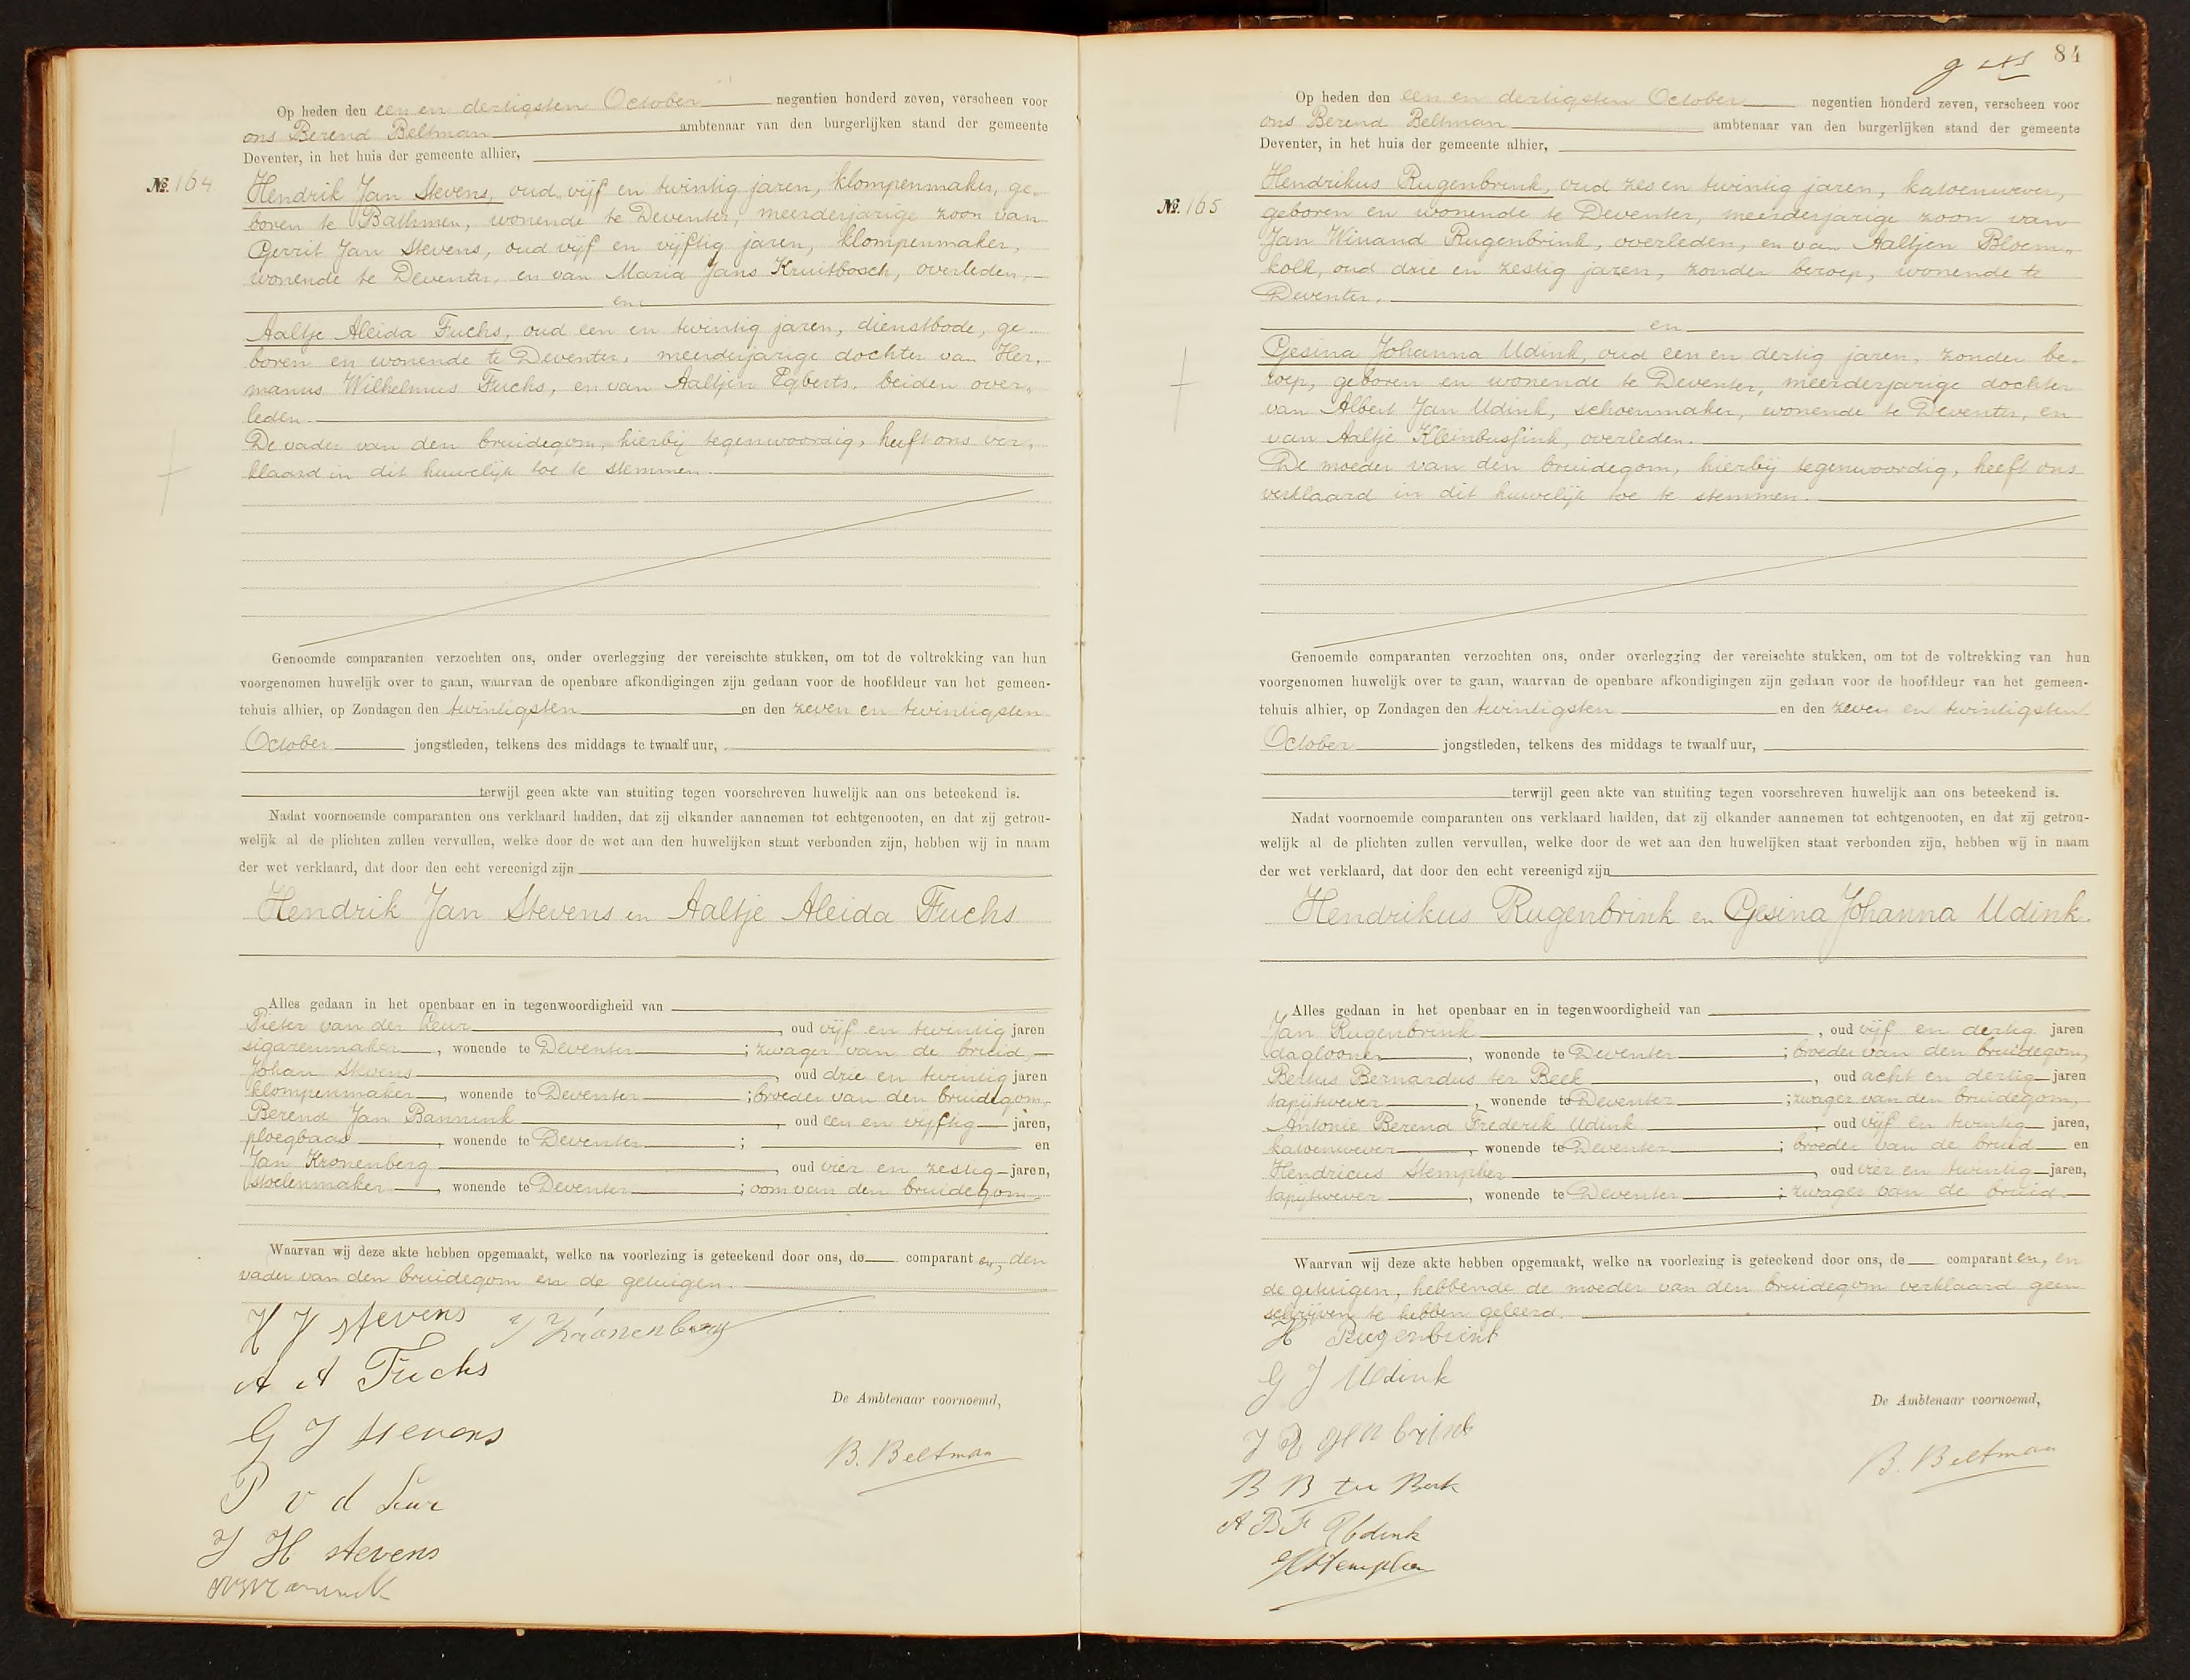 Op heden den een en dertigsten October negentien honderd zeven, verscheen voor
ons Berend Beltman ambtenaar van den burgerlijken stand der gemeente
Deventer, in het huis der gemeente alhier,
№. 164
Hendrik Jan Stevens, oud vijf en twintig jaren, klompenmaker, ge-
boren te Bathmen, wonende te Deventer, meerderjarige zoon van
Gerrit Jan Stevens, oud vijf en vijftig jaren, klompenmaker,
wonende te Deventer, en van Maria Jans Kruitbosch, overleden,
en
Aaltje Aleida Fuchs, oud een en twintig jaren, dienstbode, ge-
boren en wonende te Deventer, meerderjarige dochter van Her-
manus Wilhelmus Fuchs, en van Aaltjen Egberts, beiden over-
leden.
De vader van den bruidegom, hierbij tegenwoordig, heeft ons ver-
klaard in dit huwelijk toe te stemmen.
Genoemde comparanten verzochten ons, onder overlegging der vereischte stukken, om tot de voltrekking van hun
voorgenomen huwelijk over te gaan, waarvan de openbare afkondigingen zijn gedaan voor de hoofddeur van het gemeen-
tehuis alhier, op Zondagen den twintigsten en den zeven en twintigsten
October jongstleden, telkens des middags te twaalf uur,
terwijl geen akte van stuiting tegen voorschreven huwelijk aan ons beteekend is.
Nadat voornoemde comparanten ons verklaard hadden, dat zij elkander aannemen tot echtgenooten, en dat zij getrou-
welijk al de plichten zullen vervullen, welke door de wet aan den huwelijken staat verbonden zijn, hebben wij in naam
der wet verklaard, dat door den echt vereenigd zijn
Hendrik Jan Stevens en Aaltje Aleida Fuchs
Alles gedaan in het openbaar en in tegenwoordigheid van
Pieter van der Leur, oud vijf en twintig jaren
sigarenmaker, wonende te Deventer; zwager van de bruid,
Johan Stevens, oud drie en twintig jaren
klompenmaker, wonende te Deventer; broeder van den bruidegom,
Berend Jan Bannink, oud een en vijftig jaren,
ploegbaas, wonende te Deventer; en
Jan Kronenberg, oud vier en zestig jaren,
stoelenmaker, wonende te Deventer; oom van den bruidegom.
Waarvan wij deze akte hebben opgemaakt, welke na voorlezing is geteekend door ons, de comparanten, den
vader van den bruidegom en de getuigen.
H J Stevens J Kronenberg
A A Fuchs
G J Stevens
De Ambtenaar voornoemd,
B. Beltman
P v d Leur
J H Stevens
84
Op heden den een en dertigsten October negentien honderd zeven, verscheen voor
ons Berend Beltman ambtenaar van den burgerlijken stand der gemeente
Deventer, in het huis der gemeente alhier,
№. 165
Hendrikus Rugenbrink, oud zes en twintig jaren, katoenwever,
geboren en wonende te Deventer, meerderjarige zoon van
Jan Winand Rugenbrink, overleden, en van Aaltjen Bloem-
kolk, oud drie en zestig jaren, zonder beroep, wonende te
Deventer,
en
Gesina Johanna Udink, oud een en dertig jaren, zonder be-
roep, geboren en wonende te Deventer, meerderjarige dochter
van Albert Jan Udink, schoenmaker, wonende te Deventer, en
van Aaltje Kleinbussink, overleden.
De moeder van den bruidegom, hierbij tegenwoordig, heeft ons
verklaard in dit huwelijk toe te stemmen.
Genoemde comparanten verzochten ons, onder overlegging der vereischte stukken, om tot de voltrekking van hun
voorgenomen huwelijk over te gaan, waarvan de openbare afkondigingen zijn gedaan voor de hoofddeur van het gemeen-
tehuis alhier, op Zondagen den twintigsten en den zeven en twintigsten
October jongstleden, telkens des middags te twaalf uur,
terwijl geen akte van stuiting tegen voorschreven huwelijk aan ons beteekend is.
Nadat voornoemde comparanten ons verklaard hadden, dat zij elkander aannemen tot echtgenooten, en dat zij getrou-
welijk al de plichten zullen vervullen, welke door de wet aan den huwelijken staat verbonden zijn, hebben wij in naam
der wet verklaard, dat door den echt vereenigd zijn
Hendrikus Rugenbrink en Gesina Johanna Udink.
Alles gedaan in het openbaar en in tegenwoordigheid van
Jan Rugenbrink, oud vijf en dertig jaren
daglooner, wonende te Deventer; broeder van den bruidegom,
Bertus Bernardus ter Beek, oud acht en dertig jaren
tapijtwever, wonende te Deventer; zwager van den bruidegom,
Antonie Berend Frederik Udink, oud vijf en twintig jaren,
katoenwever, wonende te Deventer; broeder van de bruid en
Hendricus Stempher, oud vier en twintig jaren,
tapijtwever, wonende te Deventer; zwager van de bruid.
Waarvan wij deze akte hebben opgemaakt, welke na voorlezing is geteekend door ons, de comparanten, en
de getuigen, hebbende de moeder van den bruidegom verklaard geen
schrijven te hebben geleerd.
H Rugenbrink
G J Udink
De Ambtenaar voornoemd,
J Rugenbrink
B. Beltman
B B ter Beek
A B F Udink
H Stempher